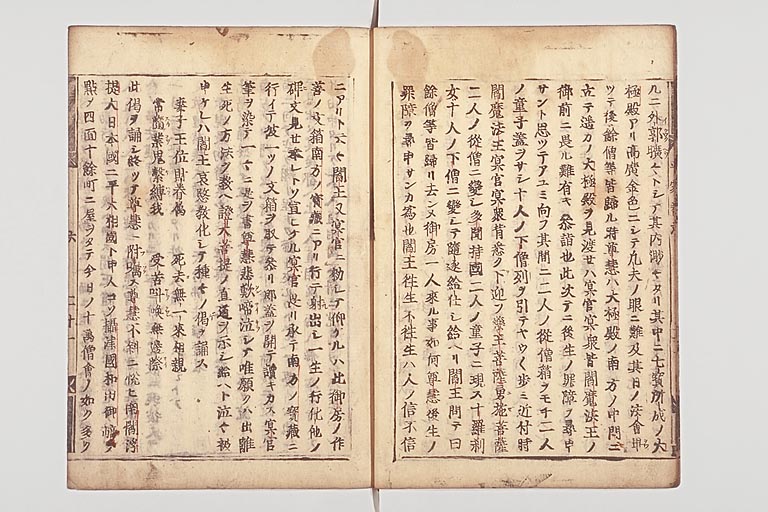 ルニ外郭曠々トシテ其内渺々タリ其中ニ七寳所成ノ大
極殿アリ高廣金色ニシテ凡夫ノ眼ニ難及其日ノ法會畢
ツテ後餘僧等皆歸ル時尊慧ハ大極殿ノ南方ノ中門ニ
立テ遥カノ大極殿ヲ見渡セハ冥官冥衆皆閻魔法王ノ
御前ニ畏ル難有キ参詣也此次テニ後生ノ罪障ヲ尋申
サント思ツテアユミ向フ其間ニ二人ノ從僧箱ヲモチ二人
ノ童子蓋ヲサシ十人ノ下僧列ヲ引テヤウ〱歩ミ近付時
閻魔法王冥官冥衆皆悉ク下迎フ藥王菩薩勇施菩薩
二人ノ從僧ニ變シ多聞持國二人ノ童子ニ現ス十羅刹
女十人ノ下僧ニ變シテ隨逐給仕シ給ヘリ閻王問テ曰
餘僧等皆歸リ去ンヌ御房一人來ル事如何尊慧後生ノ
罪障ヲ尋申サンカ爲也閻王往生不往生ハ人ノ信不信
ニアリト云々閻王又冥官ニ勅シテ仰ケルハ此御房ノ作
善ノ文箱南方ノ寳藏ニアリ行テ取出シ一生ノ行化他ノ
碑文見セ奉レトソ宣ヒケル冥官畏リ承テ南方ノ寳藏ニ
行イテ彼一ツノ文箱ヲ取テ参リ即蓋ヲ開テ讀キカス冥官
筆ヲ染テ一々ニ是ヲ書尊慧悲歎啼泣シテ唯願クハ出離
生死ノ方法ヲ教ヘ證大菩提ノ直道ヲ示シ給ヘト泣々被
申ケレハ閻王哀愍教化シテ種々ノ偈ヲ誦ス
妻子王位財眷属　死去無一來相親
常随業鬼繋縛我　受苦叫喚無邊際
此偈ヲ誦シ終ツテ尊慧ニ附嘱ス尊慧不斜ニ悦ヒ南閻浮
提大日本國ニ平大相國ト申人コソ攝津國和田御﨑ヲ
點メ四面十餘町ニ屋ヲタテ今日ノ十萬僧會ノ如ク多ク